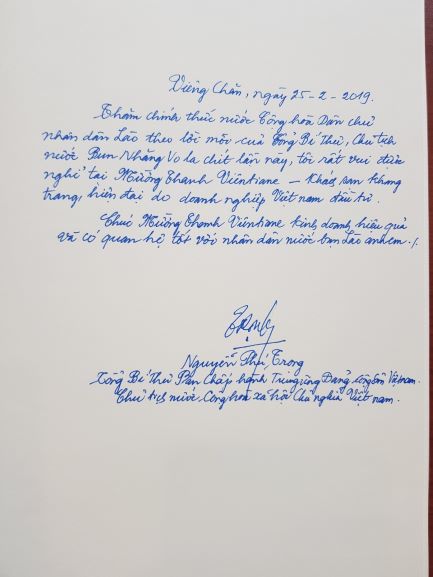 Viêng Chăn, ngày 25-2-2019.
Thăm chính thức nước Cộng hòa Dân chủ
nhân dân Lào theo lời mời của Tổng Bí thư, Chủ tịch
nước Bun Nhăng Vo la chit lần này, tôi rất vui được
nghỉ tại Mường Thanh Vientiane – Khách sạn khang
trang, hiện đại do doanh nghiệp Việt nam đầu tư.
Chúc Mường Thanh Vientiane kinh doanh hiệu quả
và có quan hệ tốt với nhân dân nước bạn Lào anh em./.
Nguyễn Phú Trọng
Tổng Bí thư Ban Chấp hành Trung ương Đảng Cộng sản Việt nam.
Chủ tịch nước Cộng hòa xã hội Chủ nghĩa Việt nam.